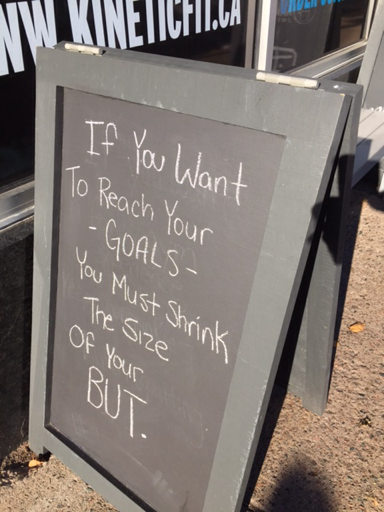 WW.KINETICFIT.CA
If You Want
To Reach Your
- GOALS -
You Must Shrink
The Size
Of Your
BUT.